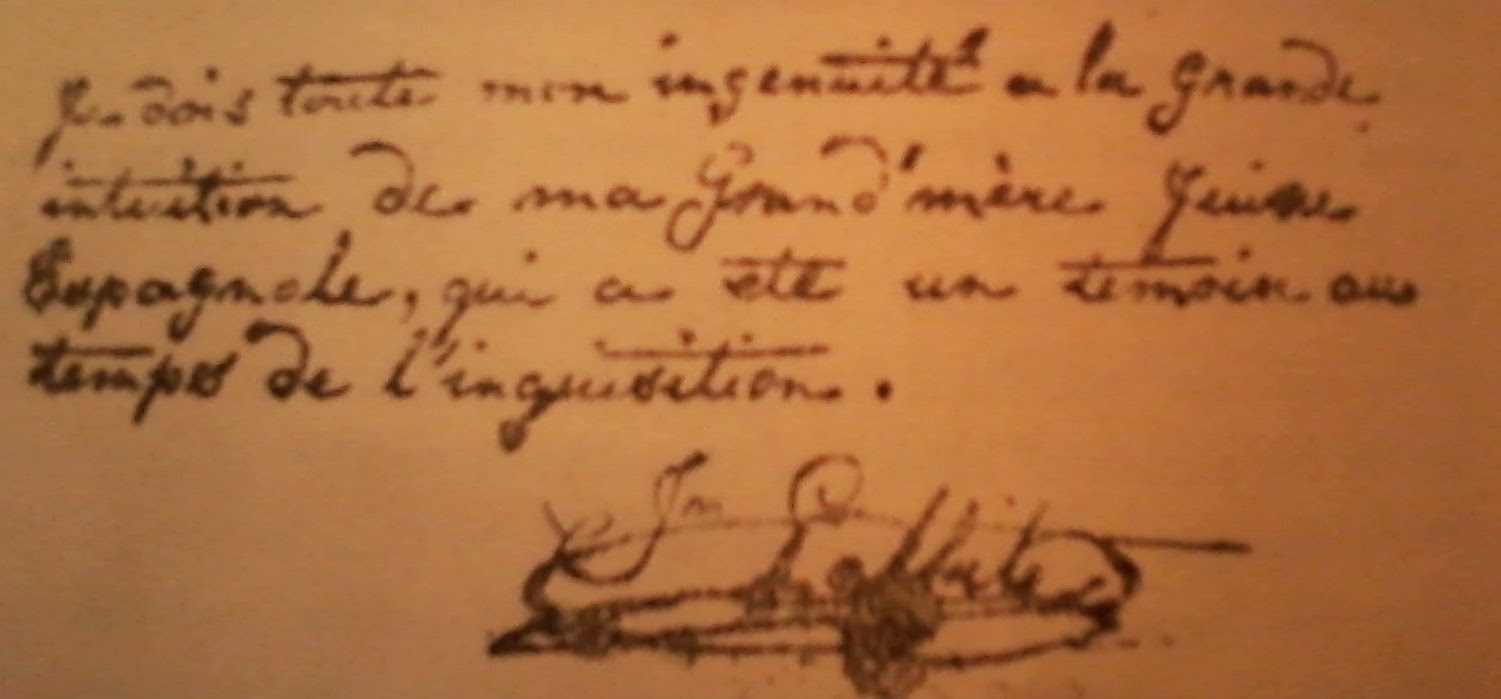 Je dois toute mon ingenuité a la Grande
intuition de ma Grand'mère Juive
Espagnole, qui a eté un temoin au
temps de l'inquisition.
Jn Laffite